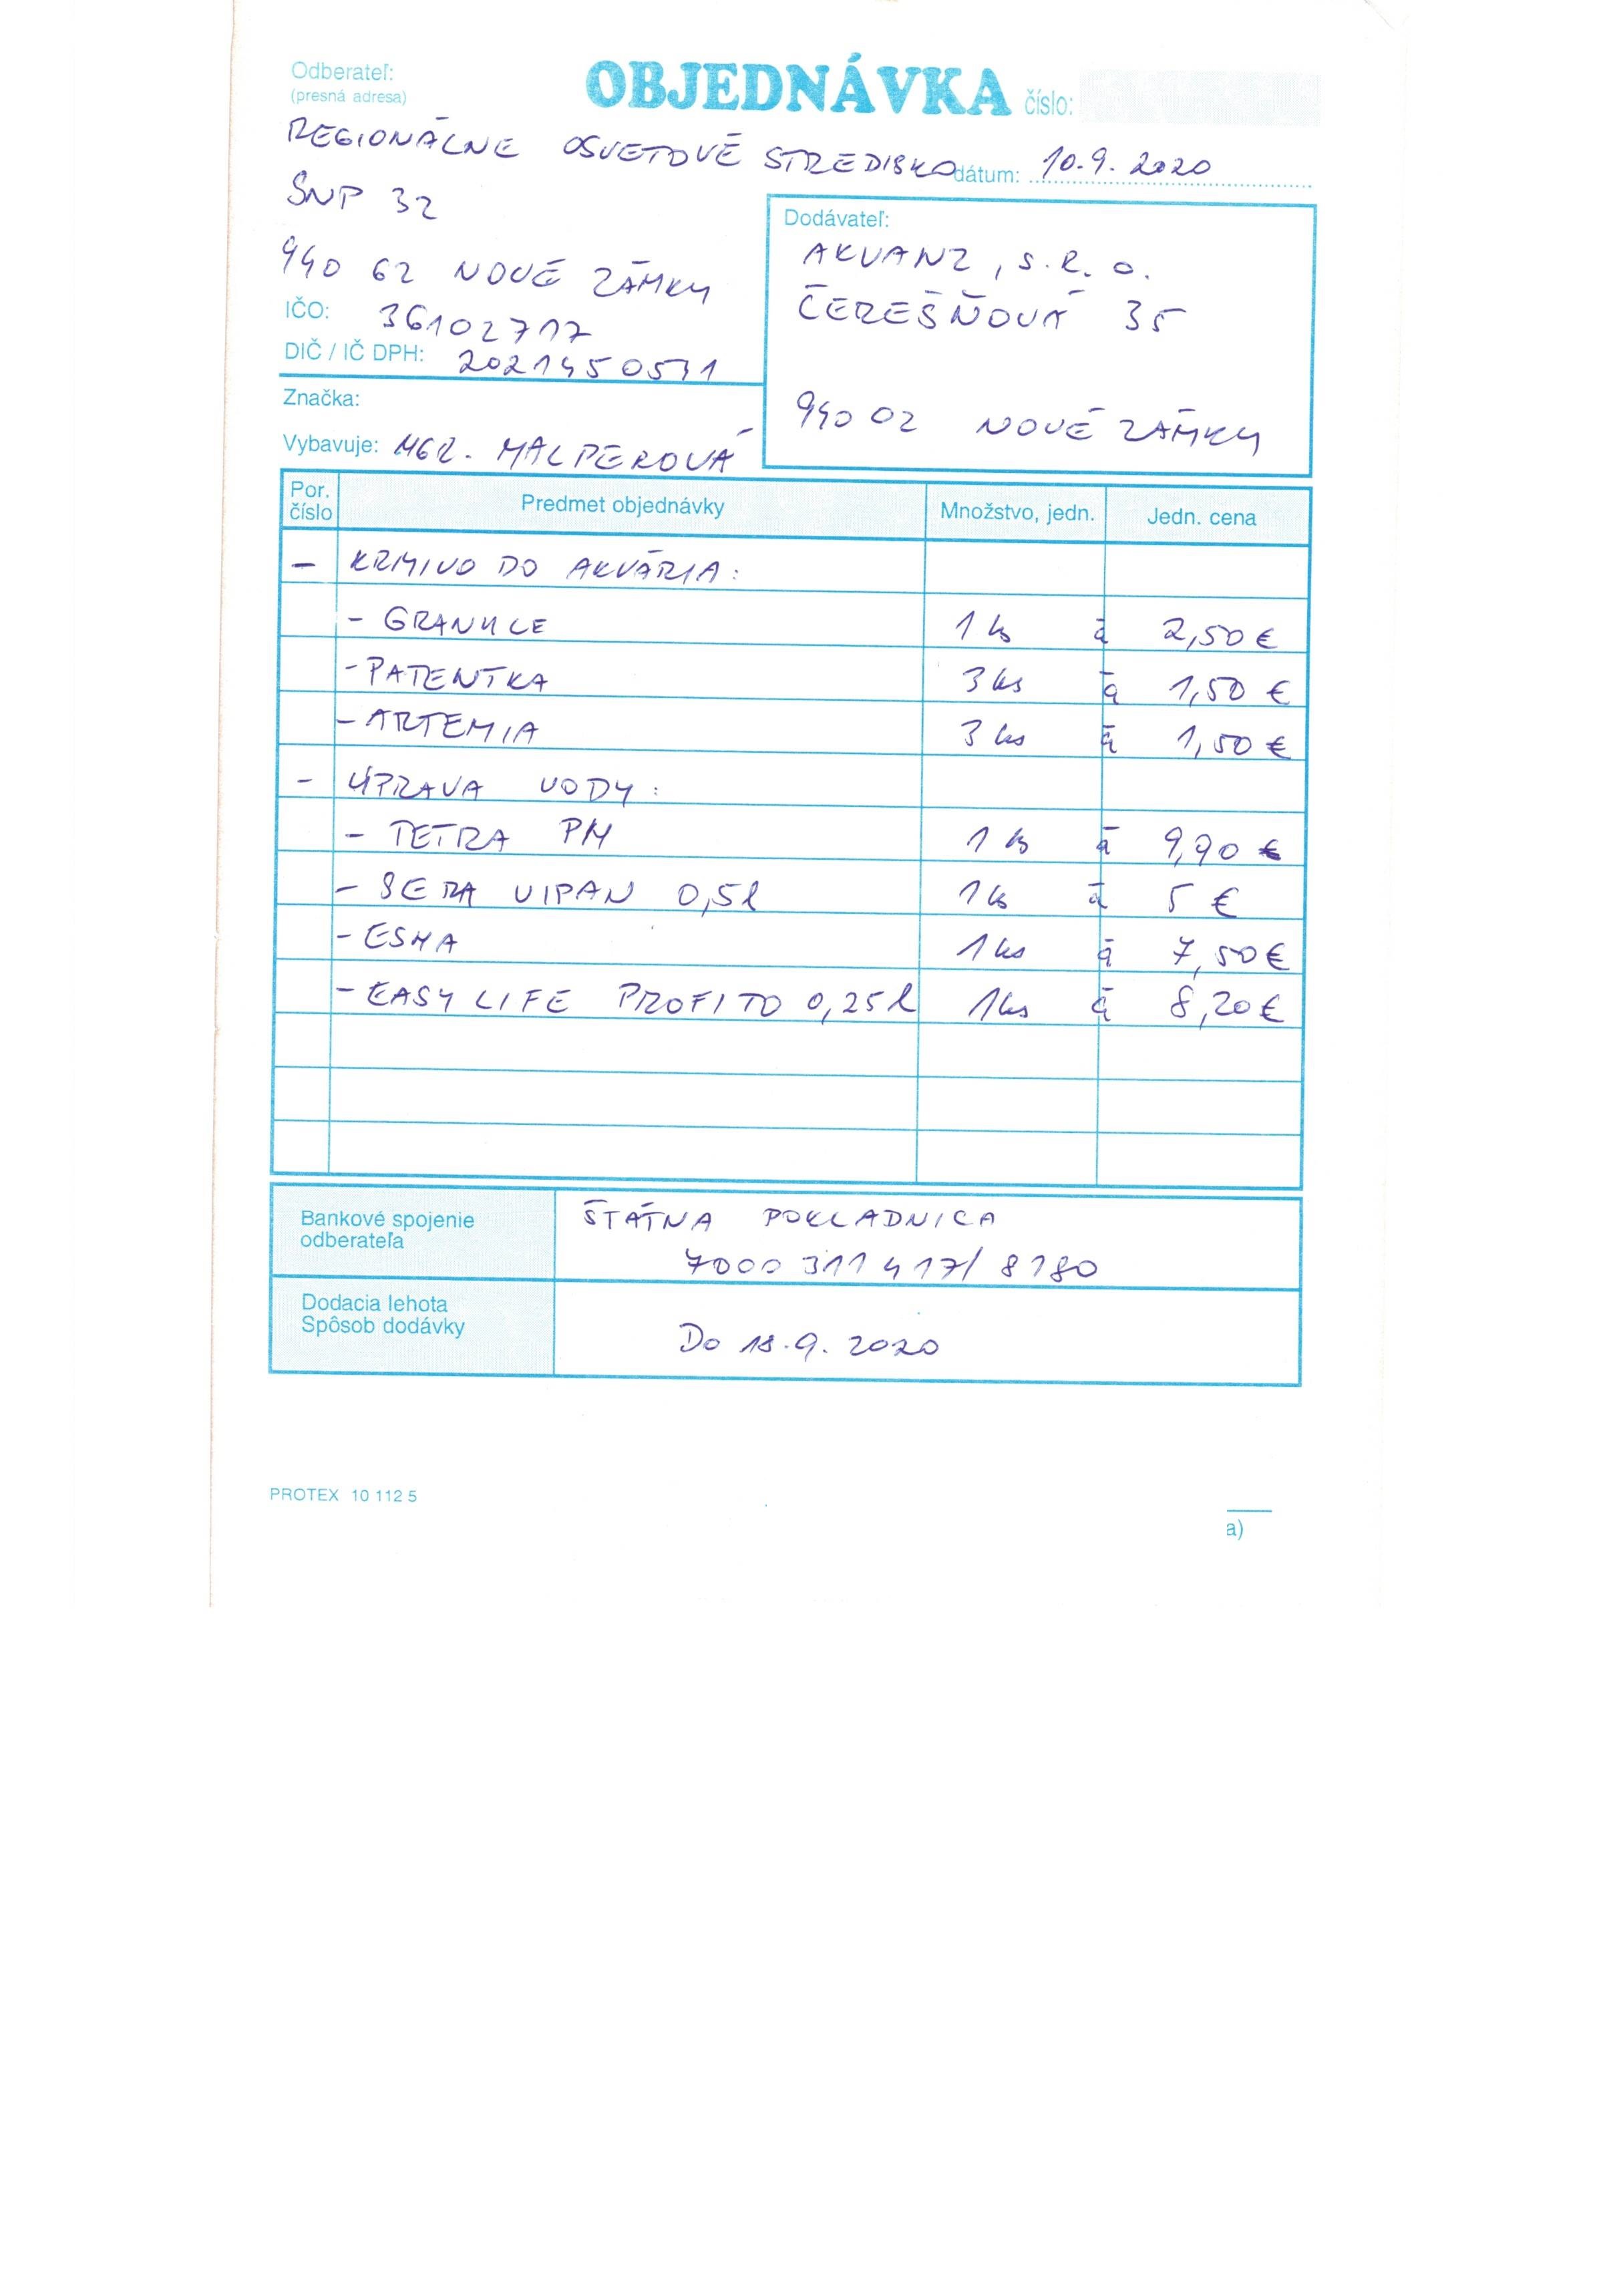 Odberateľ:
(presná adresa)
OBJEDNÁVKA číslo:
REGIONÁLNE OSVETOVÉ STREDISKO
dátum: 10.9. 2020
SNP 32
940 62 NOVÉ ZÁMKY
IČO: 36102717
DIČ / IČ DPH: 2021450531
Značka:
Vybavuje: MGR. MALPEROVÁ
Dodávateľ:
AKVANZ, s.R.o.
ČEREŠŇOVÁ 35
940 02 NOVÉ ZÁMKY
Por. číslo Predmet objednávky Množstvo, jedn. Jedn. cena
- KRMIVO DO AKVÁRIA:
- GRANULE 1 ks á 2,50 €
- PATENTKA 3 ks á 1,50 €
- ARTEMIA 3 ks á 1,50 €
- ÚPRAVA VODY:
- TETRA PM 1 ks á 9,90 €
- SERA VIPAN 0,5l 1 ks á 5 €
- ESHA 1 ks á 7,50 €
- EASY LIFE PROFITO 0,25l 1 ks á 8,20 €
Bankové spojenie
odberateľa
ŠTÁTNA POKLADNICA
7000 311 417/ 8180
Dodacia lehota
Spôsob dodávky
Do 18.9. 2020
PROTEX 10 112 5
a)